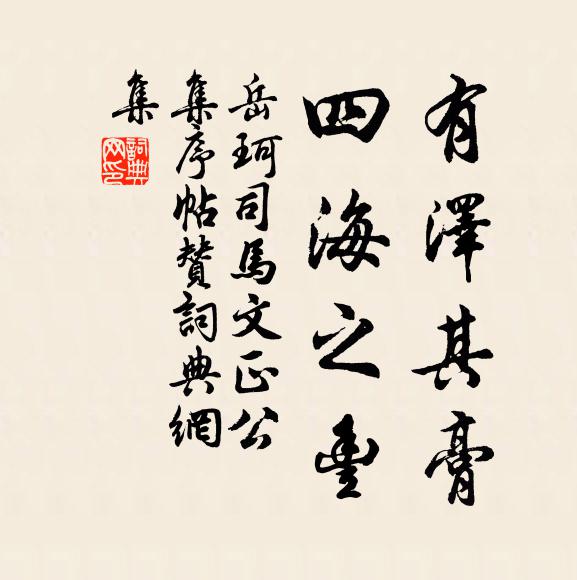 有澤其膏
四海之豐
岳珂司馬文正公
集序帖贊詞典網
集
詞典網印